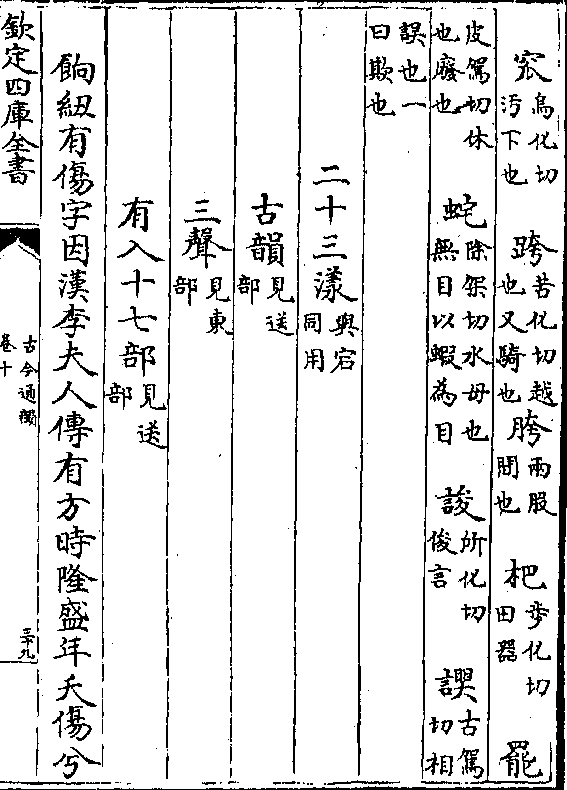 窊烏化切汚下也　跨苦化切越也又騎也　胯兩股間也　杷步化切田器　罷
皮駕切休也廢也　蛇除架切水母也無目以蝦為目　誜所化切俊言　古駕切相
誤也一曰欺也
二十三漾與宕同用
古韻見送部
三聲見東部
有入十七部見送部
餉紐有傷字因漢李夫人傳有方時隆盛年夭傷兮
欽定四庫全書
古今通韻
卷十
三十九